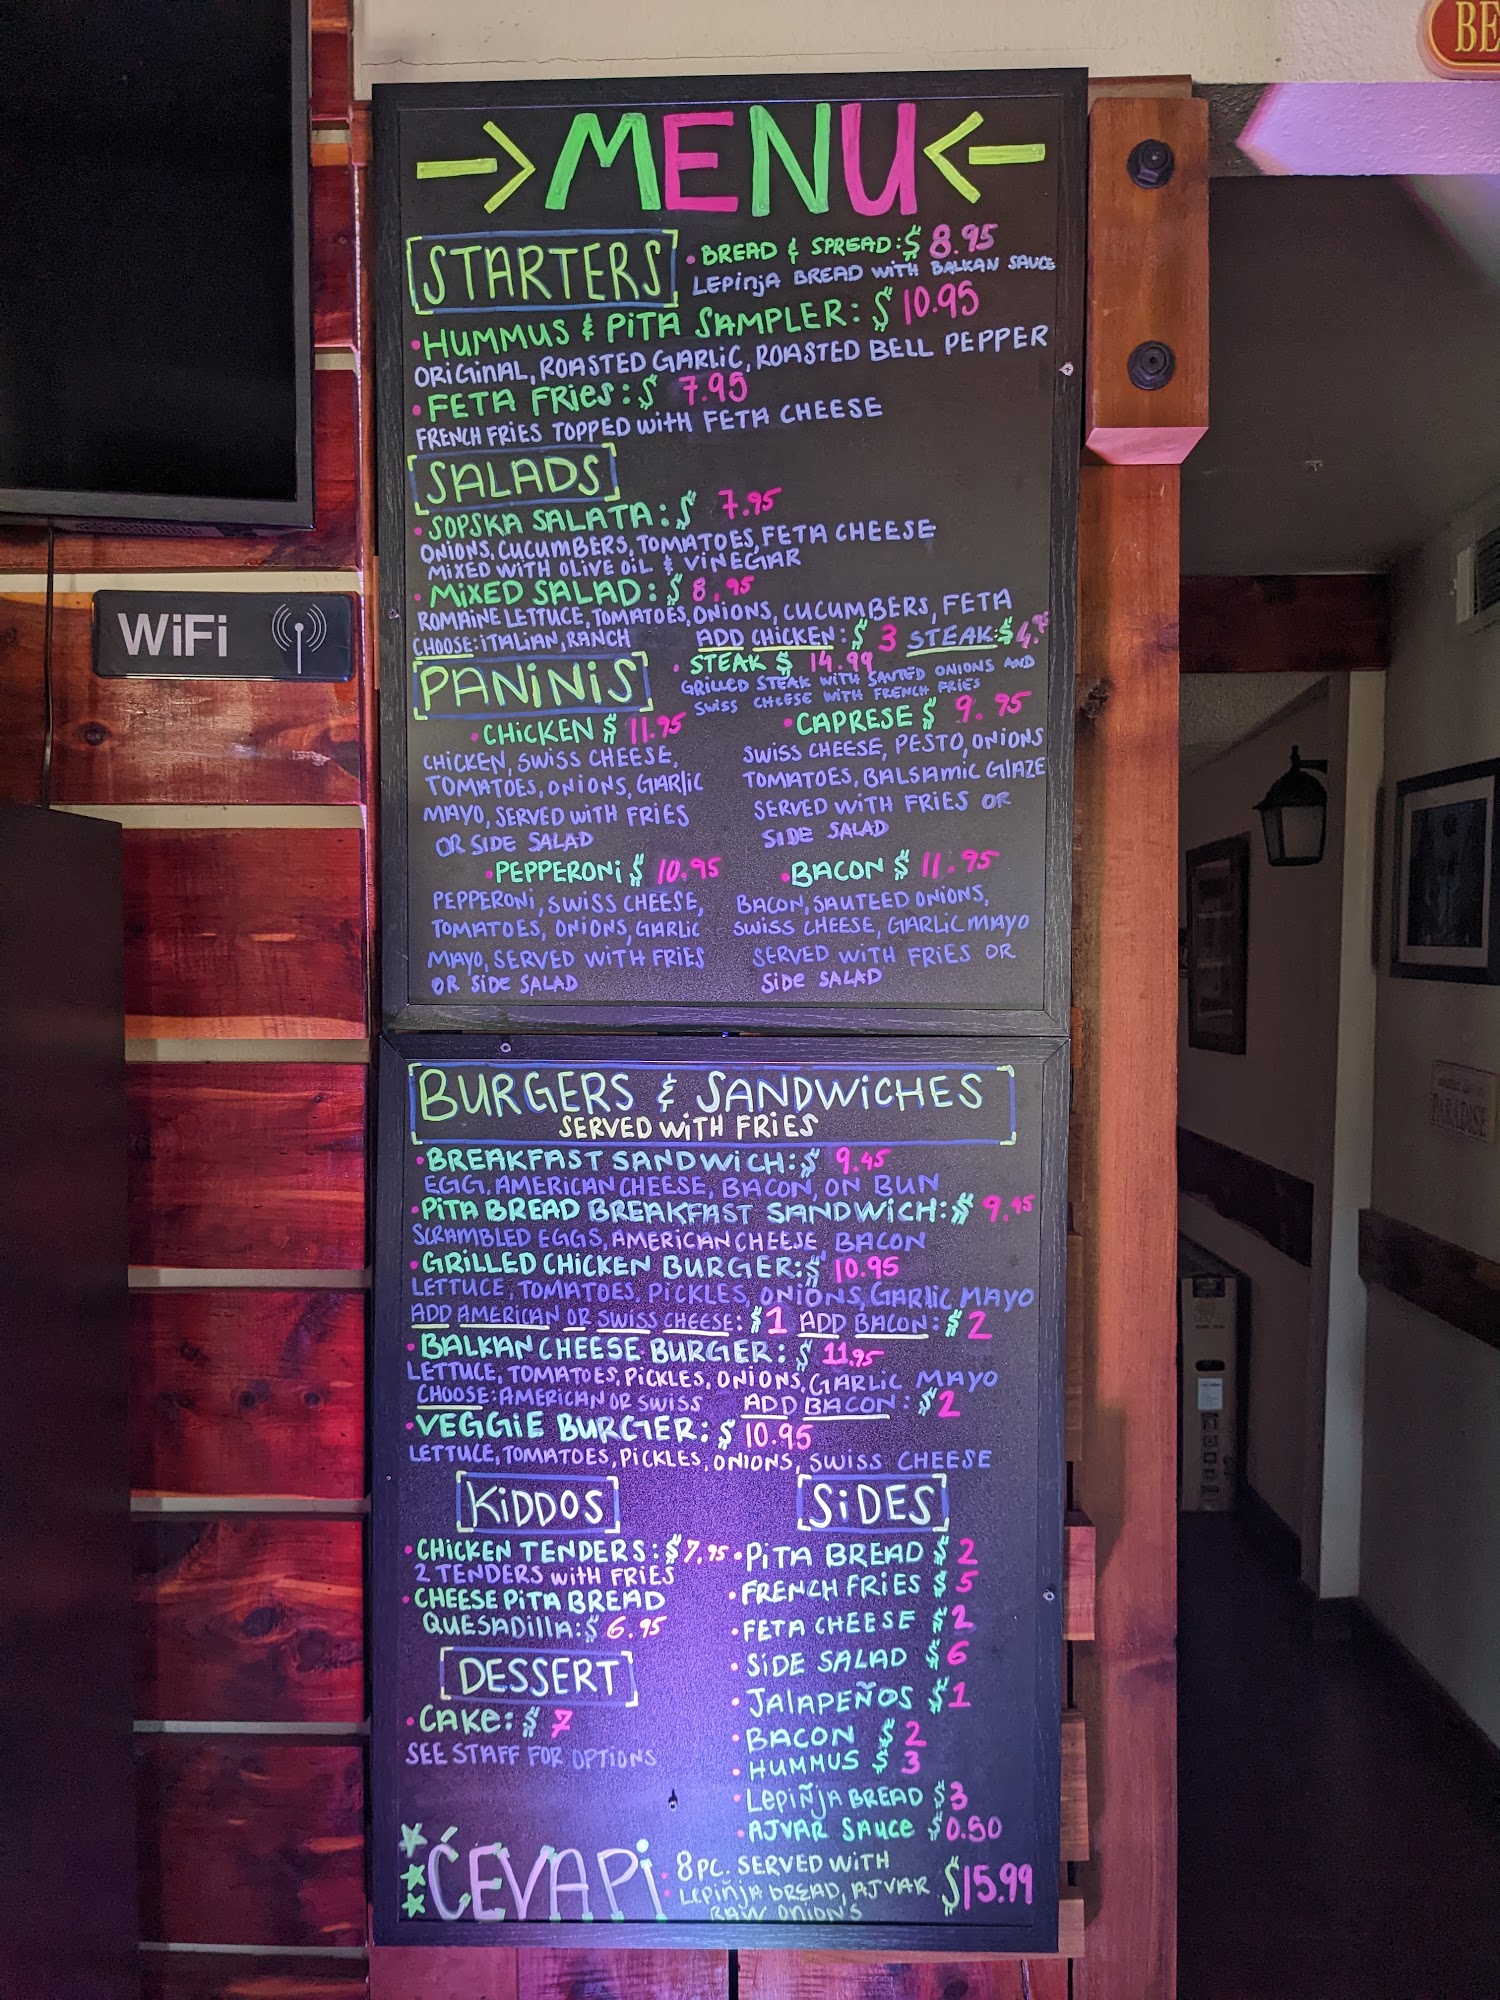 BE
-> MENU <-
STARTERS
• BREAD & SPREAD: $ 8.95
LEPINJA BREAD WITH BALKAN SAUCE
• HUMMUS & PITA SAMPLER: $ 10.95
ORIGINAL, ROASTED GARLIC, ROASTED BELL PEPPER
• FETA FRIES: $ 7.95
FRENCH FRIES TOPPED WITH FETA CHEESE
SALADS
• SOPSKA SALATA: $ 7.95
ONIONS, CUCUMBERS, TOMATOES, FETA CHEESE
MIXED WITH OLIVE OIL & VINEGAR
• MIXED SALAD: $ 8.95
ROMAINE LETTUCE, TOMATOES, ONIONS, CUCUMBERS, FETA
CHOOSE: ITALIAN, RANCH ADD CHICKEN: $ 3 STEAK: $
WiFi
PANINIS
• STEAK $ 14.99
GRILLED STEAK WITH SAUTED ONIONS AND
SWISS CHEESE WITH FRENCH FRIES
• CHICKEN $ 11.95
CHICKEN, SWISS CHEESE,
TOMATOES, ONIONS, GARLIC
MAYO, SERVED WITH FRIES
OR SIDE SALAD
• CAPRESE $ 9.95
SWISS CHEESE, PESTO, ONIONS
TOMATOES, BALSAMIC GLAZE
SERVED WITH FRIES OR
SIDE SALAD
• PEPPERONI $ 10.95
PEPPERONI, SWISS CHEESE,
TOMATOES, ONIONS, GARLIC
MAYO, SERVED WITH FRIES
OR SIDE SALAD
• BACON $ 11.95
BACON, SAUTEED ONIONS,
SWISS CHEESE, GARLIC MAYO
SERVED WITH FRIES OR
SIDE SALAD
BURGERS & SANDWICHES
SERVED WITH FRIES
• BREAKFAST SANDWICH: $ 9.45
EGG, AMERICAN CHEESE, BACON, ON BUN
• PITA BREAD BREAKFAST SANDWICH: $ 9.45
SCRAMBLED EGGS, AMERICAN CHEESE BACON
• GRILLED CHICKEN BURGER: $ 10.95
LETTUCE, TOMATOES, PICKLES, ONIONS, GARLIC MAYO
ADD AMERICAN OR SWISS CHEESE: $1 ADD BACON: $2
• BALKAN CHEESE BURGER: $ 11.95
LETTUCE, TOMATOES, PICKLES, ONIONS, GARLIC MAYO
CHOOSE: AMERICAN OR SWISS ADD BACON: $2
• VEGGIE BURGER: $ 10.95
LETTUCE, TOMATOES, PICKLES, ONIONS, SWISS CHEESE
KIDDOS
• CHICKEN TENDERS: $ 7.95
2 TENDERS WITH FRIES
• CHEESE PITA BREAD
QUESADILLA: $ 6.95
DESSERT
• CAKE: $ 7
SEE STAFF FOR OPTIONS
SIDES
• PITA BREAD $ 2
• FRENCH FRIES $ 5
• FETA CHEESE $ 2
• SIDE SALAD $ 6
• JALAPEÑOS $ 1
• BACON $ 2
• HUMMUS $ 3
• LEPIÑJA BREAD $ 3
• AJVAR SAUCE $0.50
ĆEVAPI
• 8PC. SERVED WITH
LEPIÑJA BREAD, AJVAR
RAW ONIONS
$15.99
PARADISE